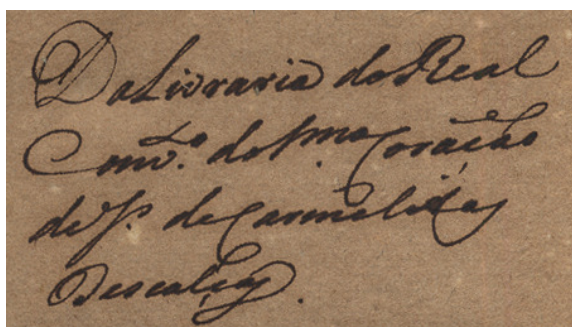 Da Livraria do Real
Conv.to do S.mo Coração
de J. de Carmelitas
Descalças.